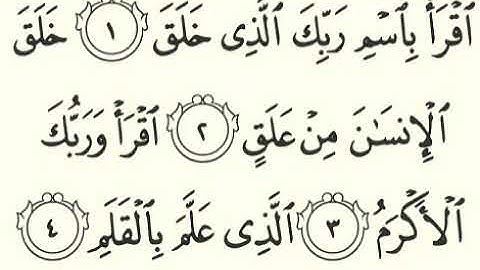 ٱقۡرَأۡ بِٱسۡمِ رَبِّكَ ٱلَّذِى خَلَقَ ١ خَلَقَ
ٱلۡإِنسَٰنَ مِنۡ عَلَقٍ ٢ ٱقۡرَأۡ وَرَبُّكَ
ٱلۡأَكۡرَمُ ٣ ٱلَّذِى عَلَّمَ بِٱلۡقَلَمِ ٤